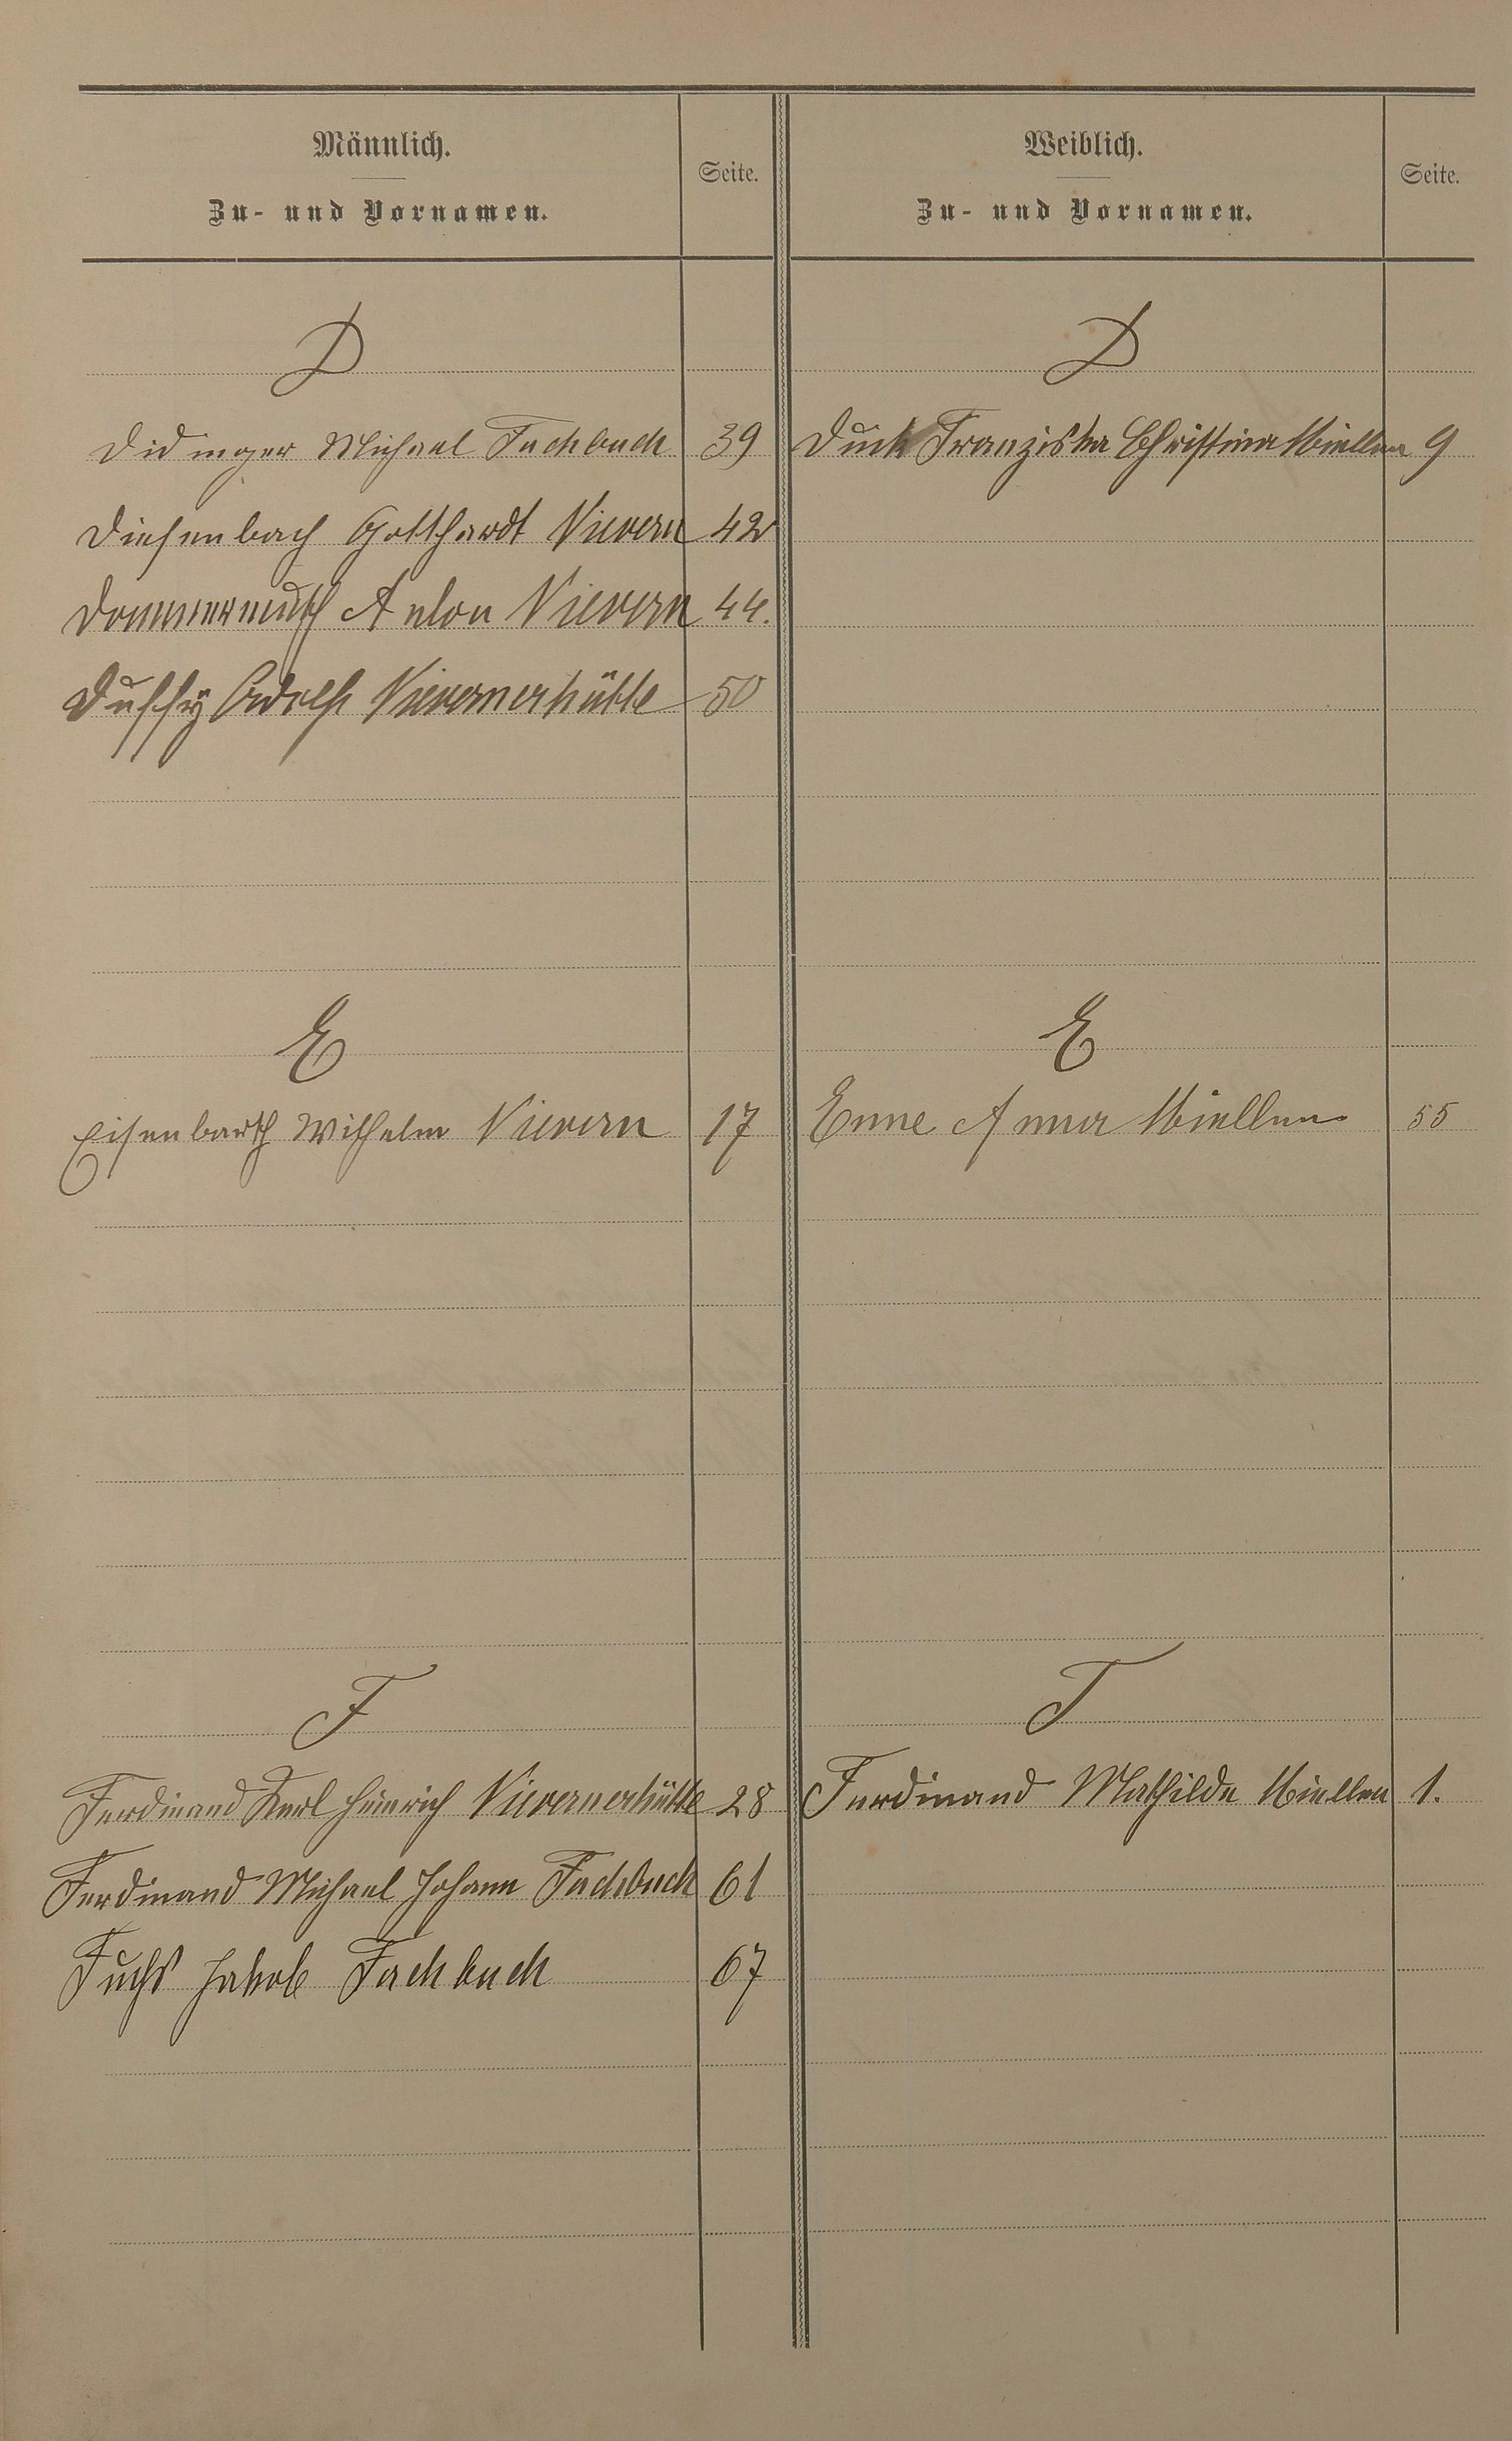 Männlich.
Zu- und Vornamen.
Seite.
Weiblich.
Zu- und Vornamen.
Seite.
D
D
Didinger Michael Fachbach 39
Duck Franziska Christina Miellen 9
Diefenbach Gotthardt Nievern 42
Anton Nievern 44.
Adolf Nievernerhütte 50
E
E
Eisenbarth Wilhelm Nievern 17
Enne Anna Miellen 55
F
F
Ferdinand Karl Heinrich Nievernerhütte 28
Ferdinand Mathilde Miellen 1.
Ferdinand Michael Johann Fachbach 61
Fuchs Jakob Fachbach 67